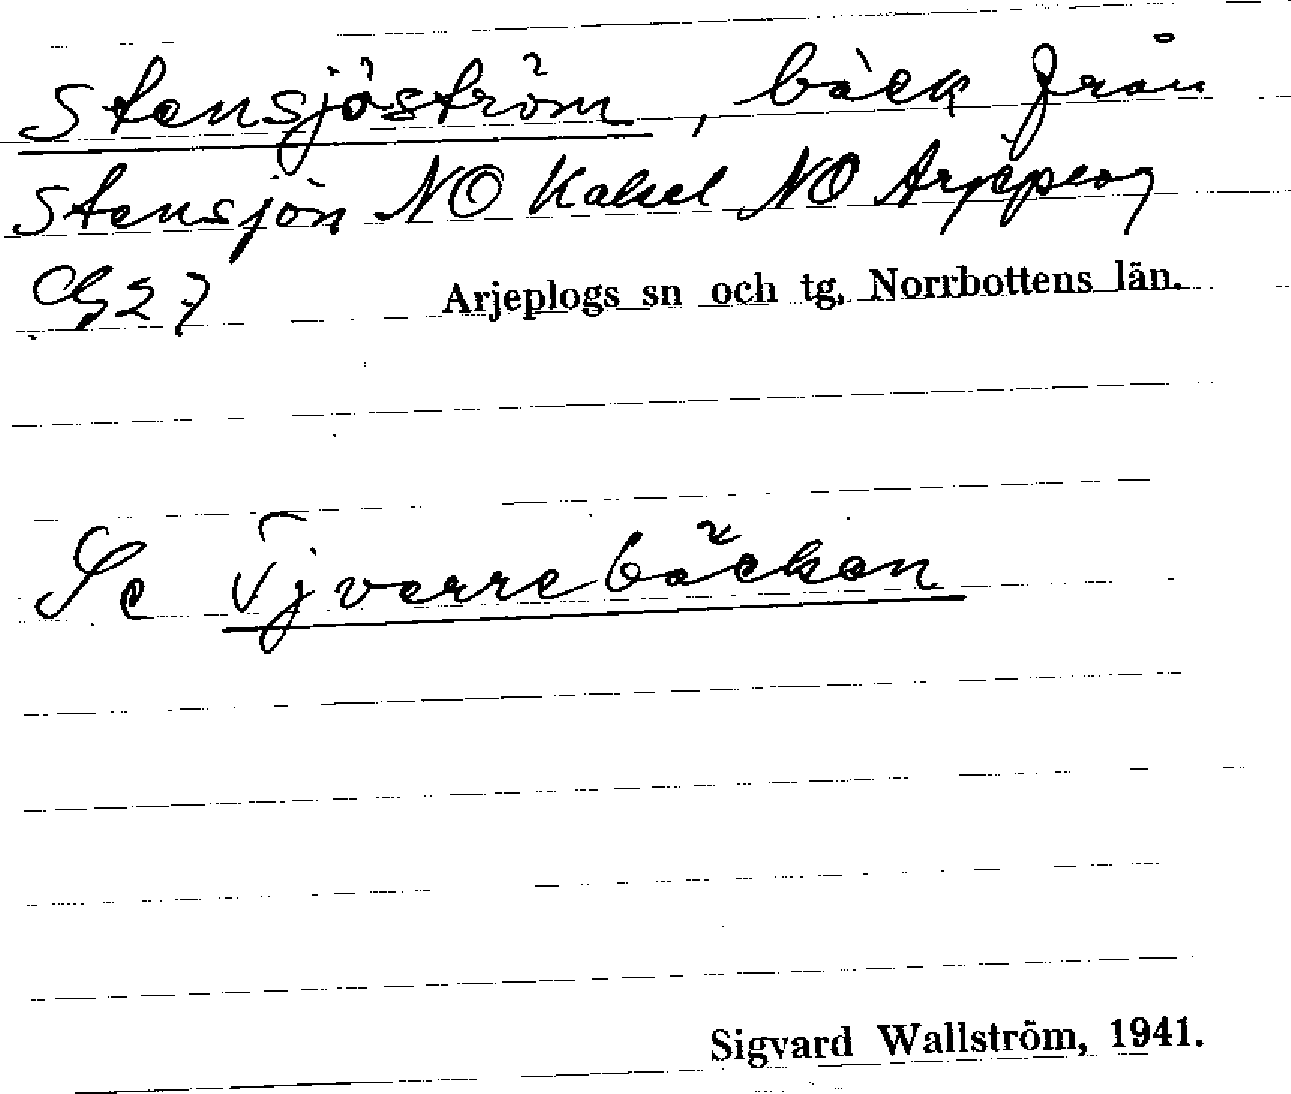 Stensjöström, bäck från
Stensjön NO Kakel NO Arjeplog
G27
Arjeplogs sn och tg, Norrbottens län.
Se Tjvorrebäcken
Sigvard Wallström, 1941.